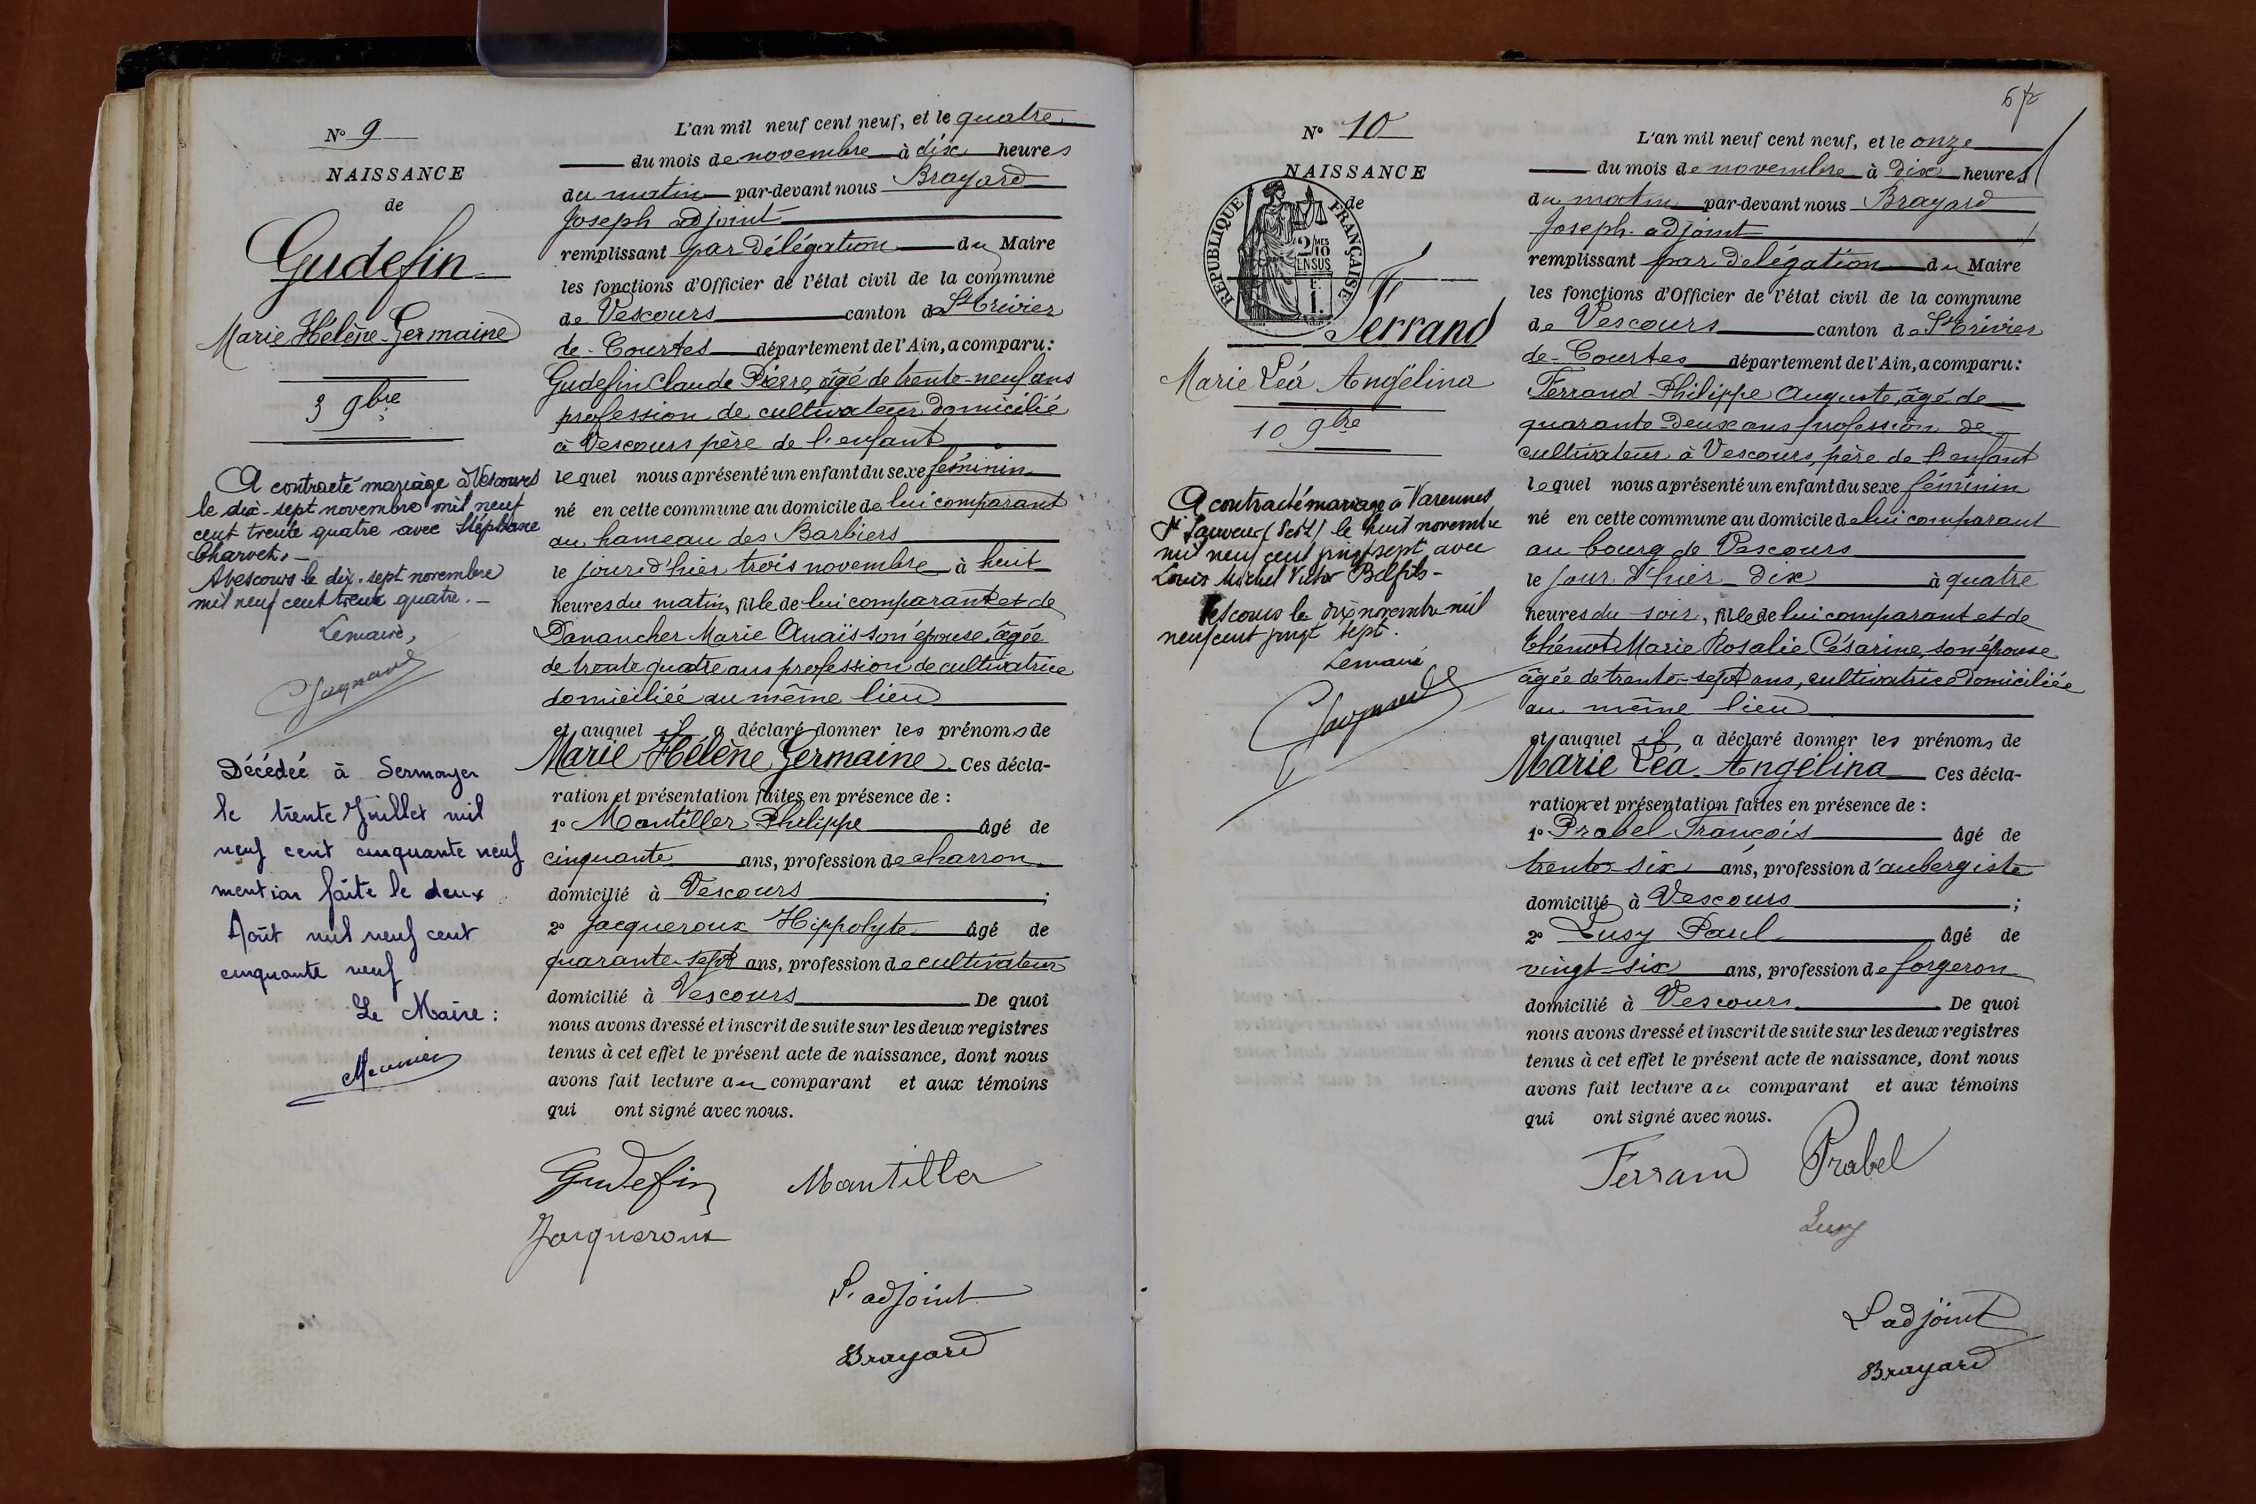 N° 9
NAISSANCE
de
Gudefin
Marie Hélène Germaine
3 9bre
A contracté mariage à Vescours
le dix-sept novembre mil neuf
cent trente quatre avec Stéphane
Charvet.
A Vescours le dix-sept novembre
mil neuf cent trente quatre.
Le maire,
Décédée à Sermoyer
le trente Juillet mil
neuf cent cinquante neuf
mention faite le deux
Août mil neuf cent
cinquante neuf
Le Maire :
Meunier
L'an mil neuf cent neuf, et le quatre
du mois de novembre à dix heures
du matin par-devant nous Brayard
Joseph adjoint
remplissant par délégation du Maire
les fonctions d'Officier de l'état civil de la commune
de Vescours canton de St Trivier
de-Courtes département de l'Ain, a comparu :
Gudefin Claude Pierre, âgé de trente-neuf ans
profession de cultivateur domicilié
à Vescours père de l'enfant
lequel nous a présenté un enfant du sexe féminin
né en cette commune au domicile de lui comparant
au hameau des Barbiers
le jour d'hier trois novembre à huit
heures du matin, fille de lui comparant et de
Danancher Marie Anaïs son épouse, âgée
de trente quatre ans profession de cultivatrice
domiciliée au même lieu
et auquel il a déclaré donner les prénoms de
Marie Hélène Germaine. Ces décla-
ration et présentation faites en présence de :
1° Mantiller Philippe âgé de
cinquante ans, profession de charron
domicilié à Vescours ;
2° Jacqueroux Hippolyte âgé de
quarante-sept ans, profession de cultivateur
domicilié à Vescours De quoi
nous avons dressé et inscrit de suite sur les deux registres
tenus à cet effet le présent acte de naissance, dont nous
avons fait lecture au comparant et aux témoins
qui ont signé avec nous.
Gudefin Mantiller
Jacqueroux
L'adjoint
Brayard
N° 10
NAISSANCE
de
RÉPUBLIQUE FRANÇAISE
2 MES
10
EN SUS
Ferrand
Marie Léa Angélina
10 9bre
A contracté mariage à Varennes
St Sauveur (S et L) le huit novembre
mil neuf cent vingt sept avec
Louis Michel Victor Belfils -
Vescours le dix novembre mil
neuf cent vingt sept.
Le maire
L'an mil neuf cent neuf, et le onze
du mois de novembre à dix heures
du matin par-devant nous Brayard
Joseph adjoint
remplissant par délégation du Maire
les fonctions d'Officier de l'état civil de la commune
de Vescours canton de St Trivier
de-Courtes département de l'Ain, a comparu :
Ferrand Philippe Auguste, âgé de
quarante deux ans profession de
cultivateur à Vescours, père de l'enfant
lequel nous a présenté un enfant du sexe féminin
né en cette commune au domicile de lui comparant
au bourg de Vescours
le jour d'hier dix à quatre
heures du soir, fille de lui comparant et de
Thénot Marie Rosalie Césarine, son épouse
âgée de trente-sept ans, cultivatrice domiciliée
au même lieu
et auquel il a déclaré donner les prénoms de
Marie Léa Angélina Ces décla-
ration et présentation faites en présence de :
1° Prabel François âgé de
trente-six ans, profession d'aubergiste
domicilié à Vescours ;
2° Lusy Paul âgé de
vingt-six ans, profession de forgeron
domicilié à Vescours De quoi
nous avons dressé et inscrit de suite sur les deux registres
tenus à cet effet le présent acte de naissance, dont nous
avons fait lecture au comparant et aux témoins
qui ont signé avec nous.
Ferrand Prabel
Lusy
L'adjoint
Brayard